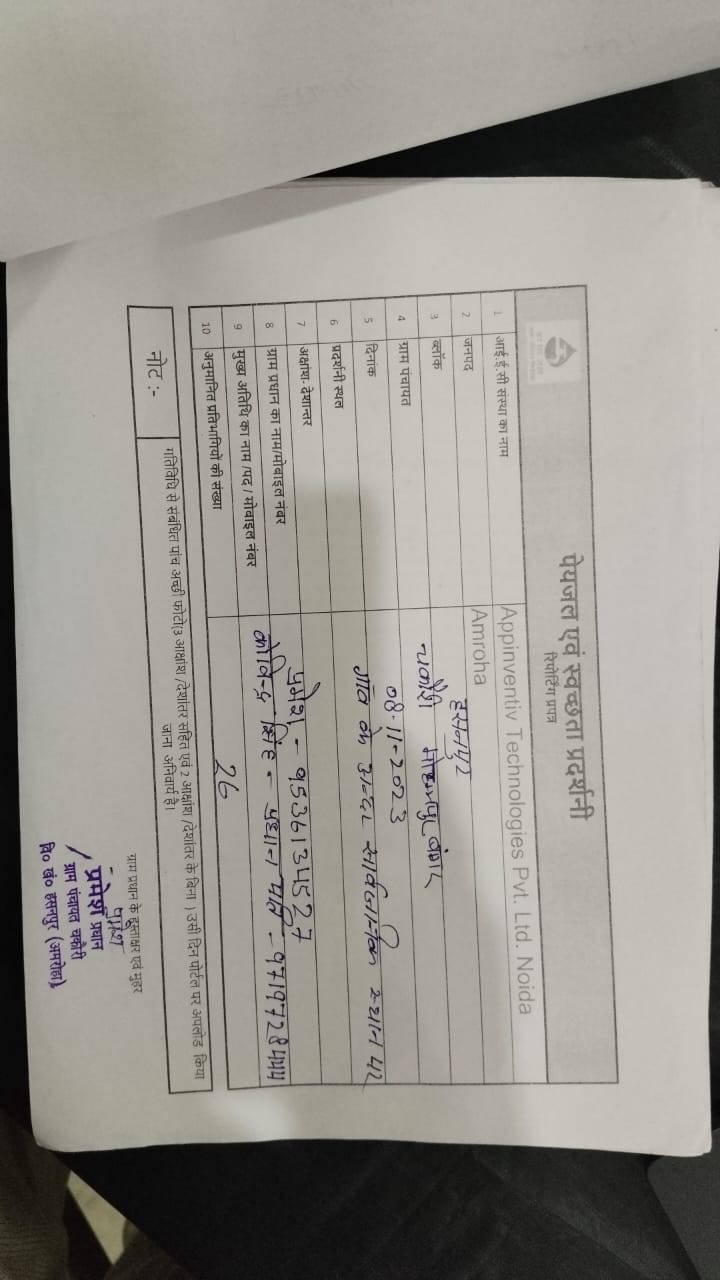 पेयजल एवं स्वच्छता प्रदर्शनी
रिपोर्टिंग प्रपत्र
1 आई.ई.सी संस्था का नाम Appinventiv Technologies Pvt. Ltd. Noida
2 जनपद Amroha
3 ब्लॉक हसनपुर
4 ग्राम पंचायत चकोरी
5 दिनांक 08-11-2023
6 प्रदर्शनी स्थल गाँव के अन्दर सार्वजानिक स्थान पर
7 अक्षांश- देशान्तर
8 ग्राम प्रधान का नाम/मोबाइल नंबर प्रमेश - 9536134527
9 मुख्य अतिथि का नाम /पद / मोबाइल नंबर सिंह - प्रधान पति - 9719728444
10 अनुमानित प्रतिभागियों की संख्या 26
नोट :- गतिविधि से संबंधित पांच अच्छी फोटो(3 आक्षांश /देशांतर सहित एवं 2 आक्षांश /देशांतर के बिना ) उसी दिन पोर्टल पर अपलोड किया
जाना अनिवार्य है।
ग्राम प्रधान के हस्ताक्षर एवं मुहर
प्रमेश
प्रमेश प्रधान
ग्राम पंचायत चकोरी
वि० खं० हसनपुर (अमरोहा)